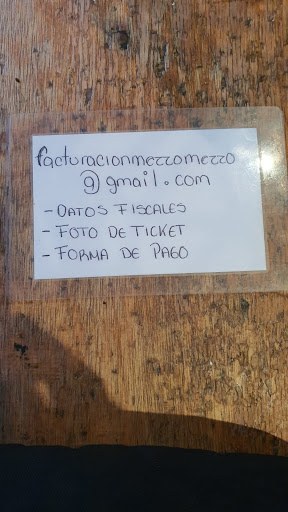 facturacionmezzomezzo
@gmail.com
- DATOS FISCALES
- FOTO DE TICKET
- FORMA DE PAGO